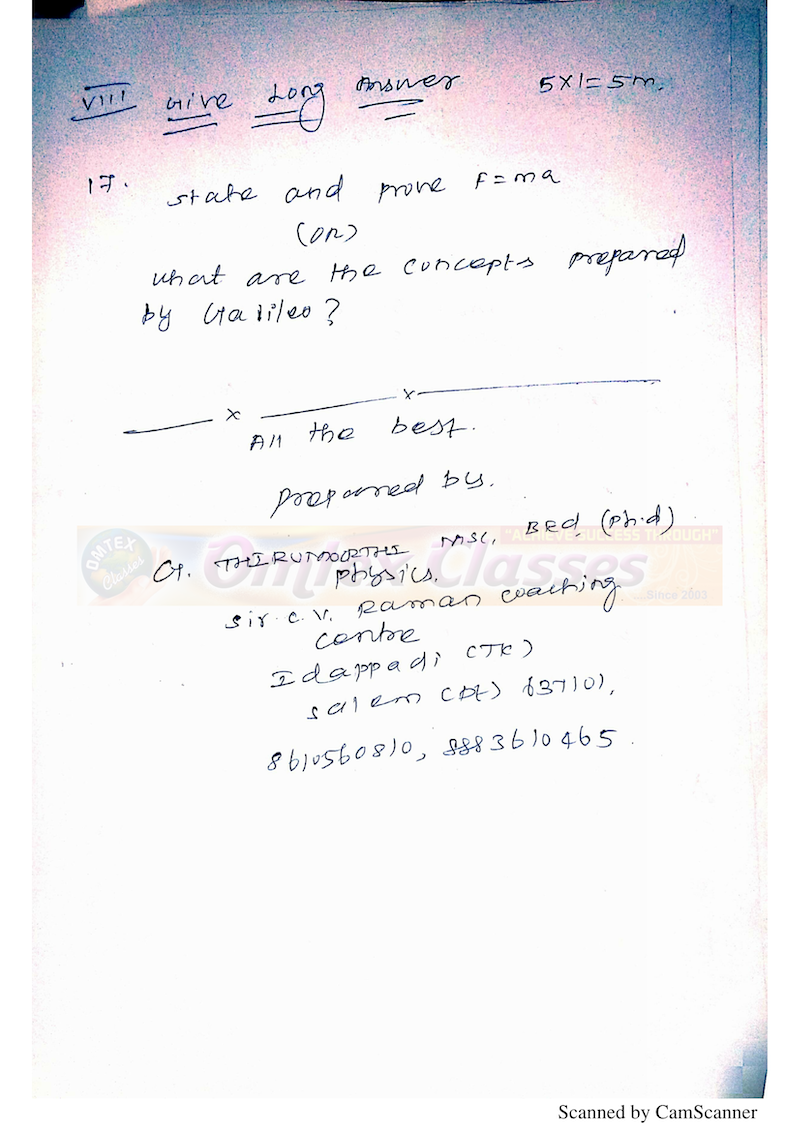 VIII Give Long Answer 5X1=5m.
17. State and prove F=ma
(OR)
what are the concepts prepared
by Galileo?
x x
All the best.
prepared by.
G. THIRUMOORTHI MSC, BEd (Ph.d)
Physics.
sir. C. V. Raman coaching
centre
Idappadi (TK)
salem (Dt) 637101,
8610560810, 8883610465.
OMTEX Classes
"ACHIEVE SUCCESS THROUGH"
Omtex Classes
....Since 2003
Scanned by CamScanner